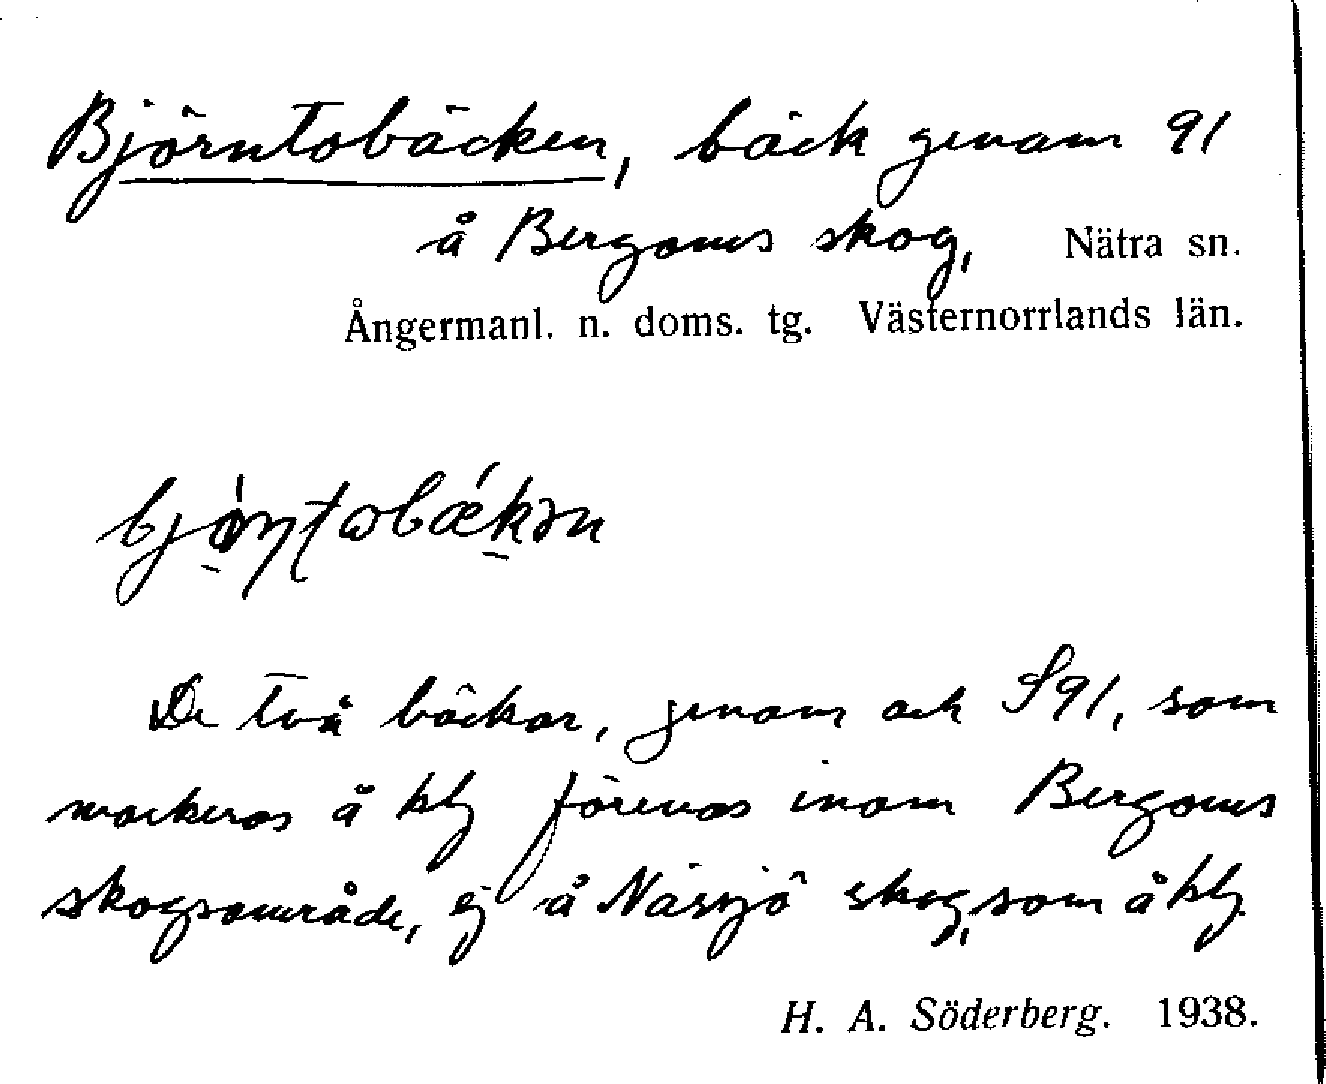 Björntobäcken, bäck genom 91
å Bergoms skog, Nätra sn.
Ångermanl. n. doms. tg. Västernorrlands län.
De två bäckar, genom och S 91, som
markeras å kbl förenas inom Bergoms
skogsområde, ej å Nässjö skog, som å kbl.
H. A. Söderberg. 1938.